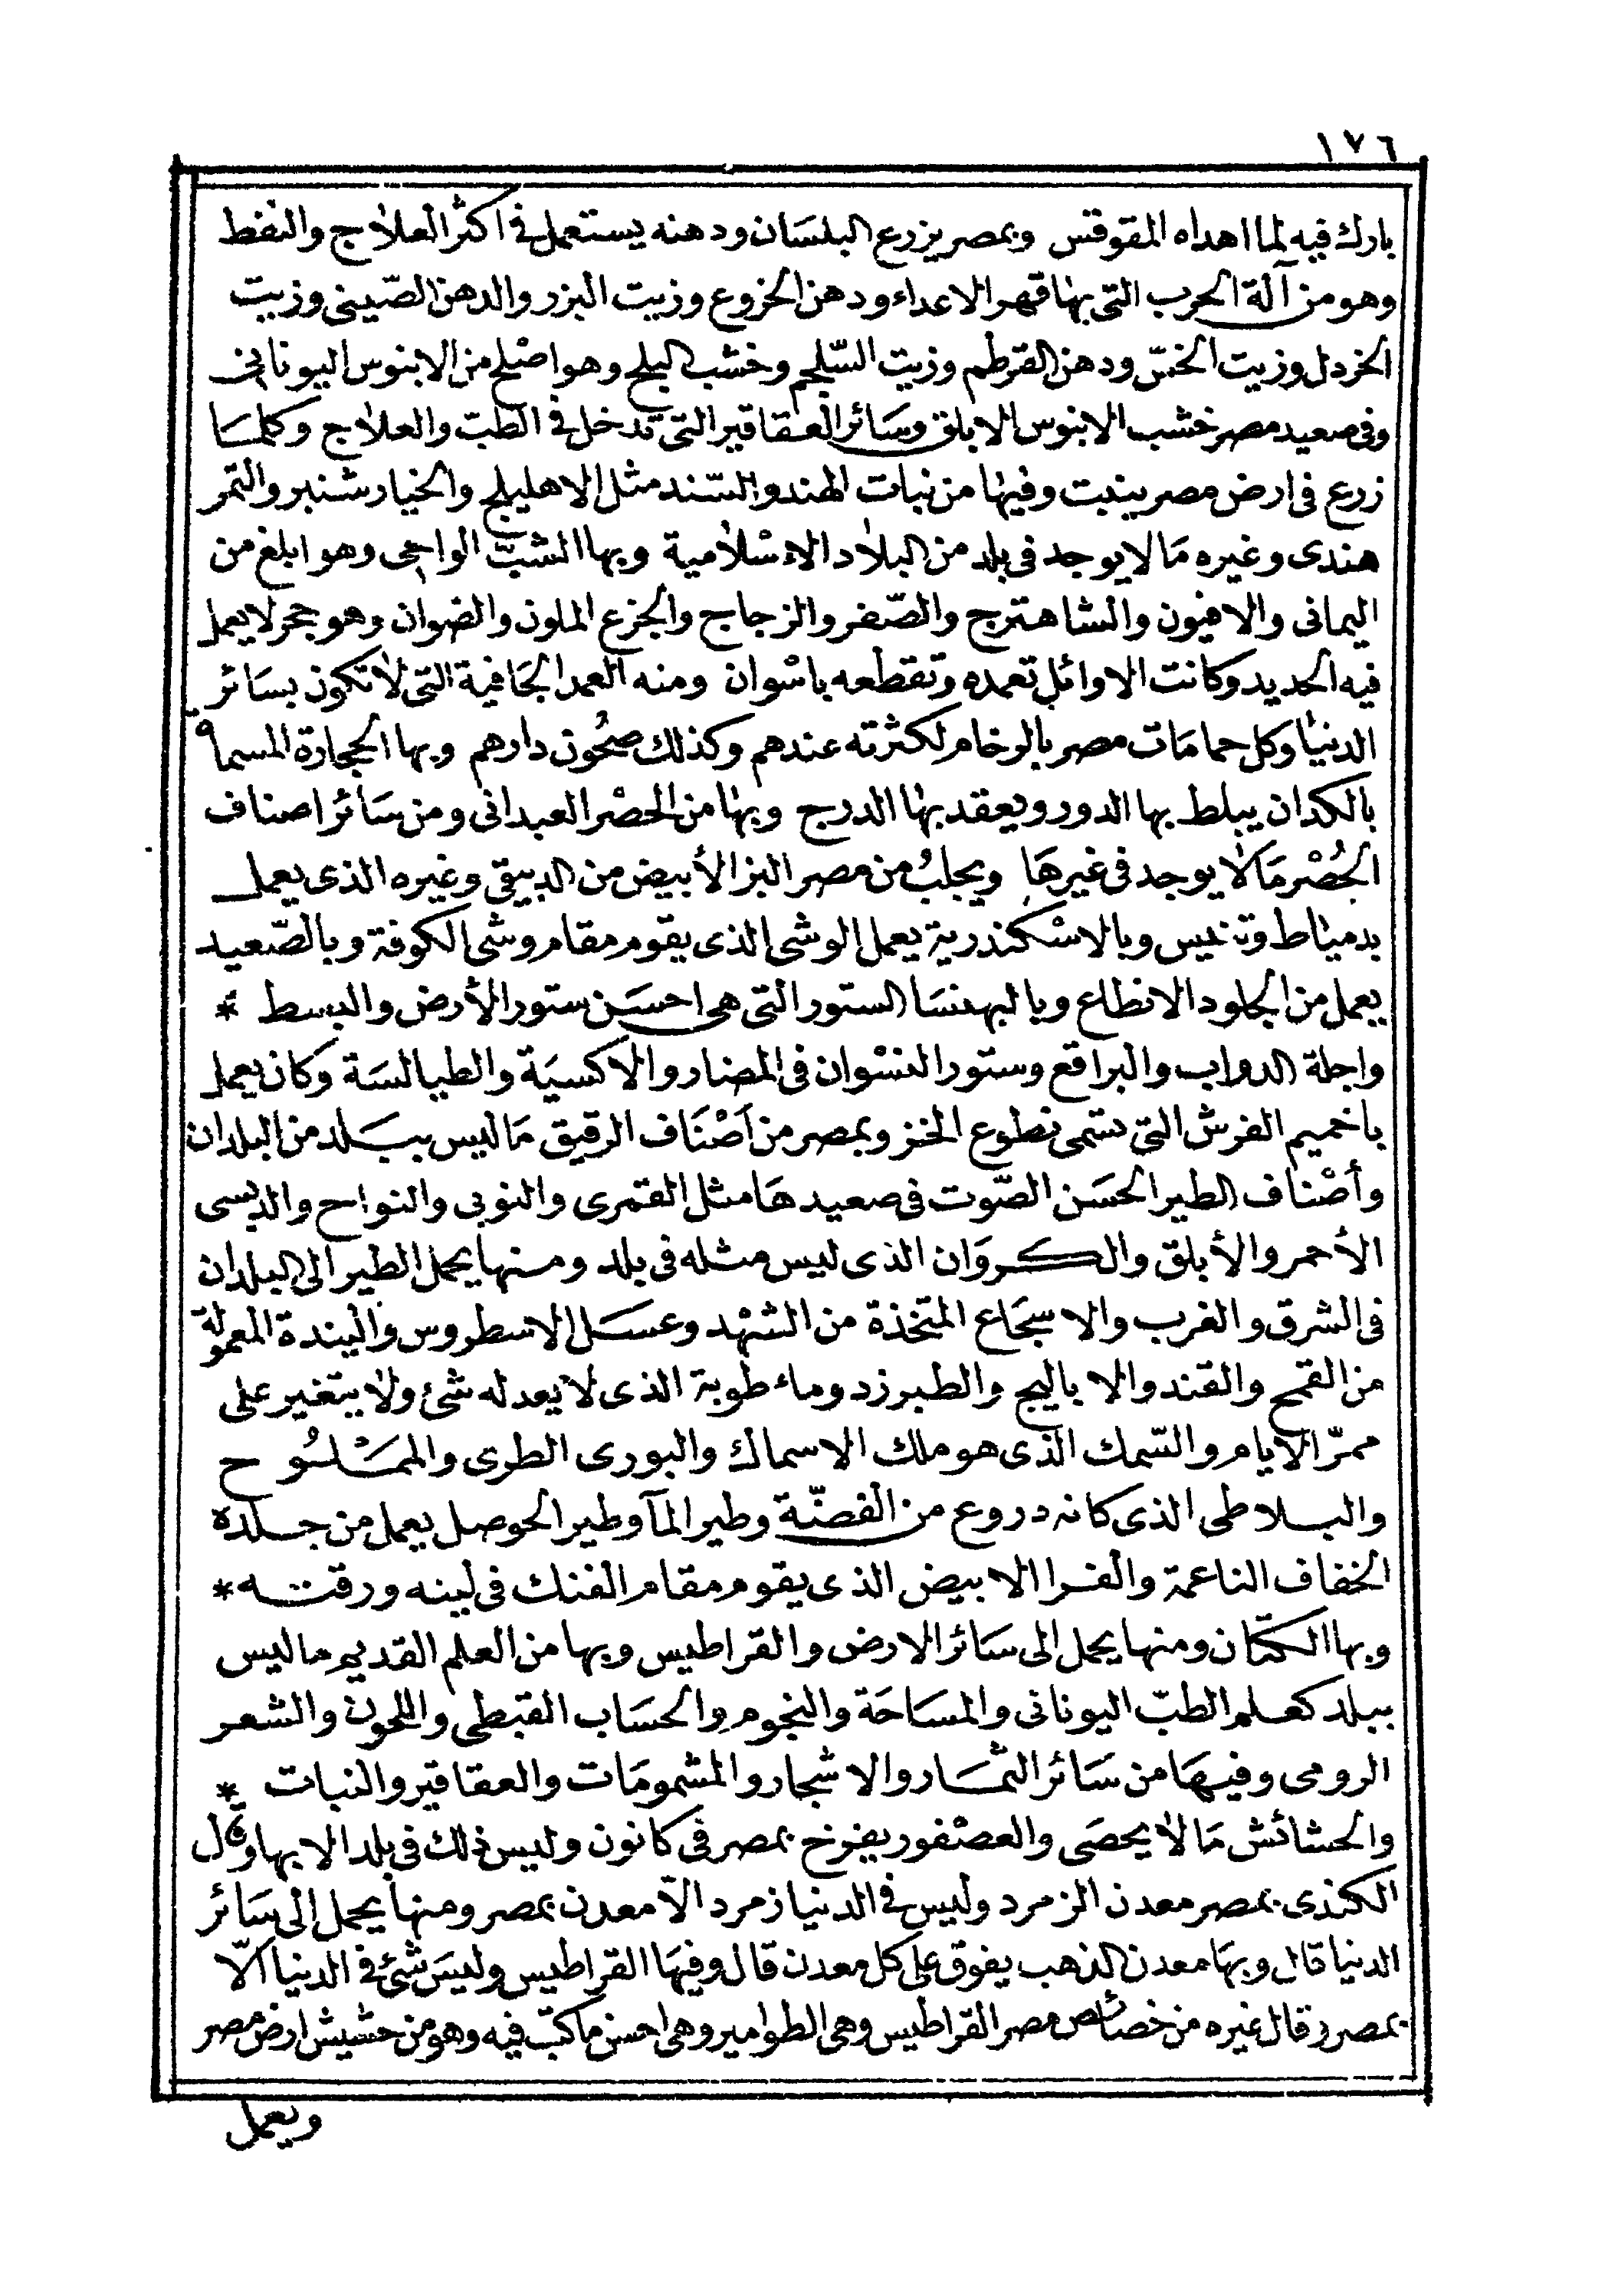 ١٧٦
بارك فيه لما اهداه المقوقس وبمصر يزرع البلسَان ودهنه يستعمل فى اكثر العلاج والنفط
وهو من آلة الحرب التى بها قهر الاعداء ودهن الخروع وزيت البزر والدهن الصّينى وزيت
الخردل وزيت الخسّ ودهن القرطم وزيت السّلجم وخشب البلح وهو اصْلح من الابنوس اليونانى
وفى صعيد مصر خشب الابنوس الابلق وسَائر العقاقير التى تدخل فى الطبّ والعلاج وكلمسَا
زرع فى ارض مصر ينبت وفيها من نبات الهند والسّند مثل الاهليلج والخيار شنبر والتمر
هندى وغيره مَا لا يوجد فى بلد من البلاد الاسْلامية وبها الشبّ الواحى وهو ابلغ من
اليمانى والافيون والشاهترج والصّفر والزجاج والجزع الملون والضوان وهو حجر لا يعمل
فيه الحديد وكانت الاوائل تعمده وتقطعه باسْوان ومنه العمد الجَافية التى لا تكون بسَائر
الدنيا وكل حمامَات مصر بالرخام لكثرته عندهم وكذلك صحُون دارهم وبها الحجارة المسماة
بالكدان يبلط بها الدور ويعقد بها الدرج وبها من الحصْر العبدانى ومن سَائر اصناف
الحُصْر مَا لا يوجد فى غيرهَا ويجلبُ من مصر البز الأبيض من الدبيقى وغيره الذى يعمل
بدمياط وتنيس وبالاسْكندرية يعمل الوشى الذى يقوم مقام وشى الكوفة وبالصّعيد
يعمل من الجلود الانطاع وبالبهنسَا الستور التى هى احسَن ستور الأرض والبسط *
واجلة الدواب والبراقع وستور النسْوان فى المضار والاكسيَة والطيالسَة وكان يعمل
باخميم الفرش التى تسمى نطوع الخز وبمصر من اَصْنَاف الرقيق مَا ليس ببَلد من البلدان
وأصْناف الطير الحسَن الصّوت فى صعيدهَا مثل القمرى والنوبى والنواح والدبسى
الأحمر والأبلق والكروَان الذى ليس مثله فى بلد ومنها يحمل الطير الى البلدان
فى الشرق والغرب والاسجَاع المتخذة من الشهْد وعسَل الاسطروس والبيندة المعمولة
من القمح والقند والاباليج والطبرزد وماء طوبة الذى لا يعدله شئ ولا يتغير على
ممرّ الايام والسّمك الذى هو ملك الاسماك والبورى الطرى والممسْلُوح
والبلاطى الذى كانه دروع من الفضّة وطير المآ وطير الحوصل يعمل من جلده
الخفاف الناعمة والفرا الابيض الذى يقوم مقام الفنك فى لينه ورقته *
وبها الكتّان ومنها يحمل الى سَائر الارض والقراطيس وبها من العلم القديم ما ليس
ببلد كعلم الطبّ اليونانى والمسَاحَة والنجوم والحسَاب القبطى واللحون والشعر
الرومى وفيهَا من سَائر الثمَار والاشجار والمشمومَات والعقاقير والنبات *
والحشائش مَا لا يحصَى والعصْفور يفرخ بمصر فى كانون وليس ذلك فى بلد الا بها وقال
الكندى بمصر معدن الزمرد وليس فى الدنيا زمرد الاّ معدن بمصر ومنها يحمل الى سَائر
الدنيا قال وبهَا معدن الذهب يفوق على كل معدن قال وفيهَا القراطيس وليسَ شئ فى الدنيا الاّ
بمصر وقال غيره من خصائص مصر القراطيس وهى الطوامير وهى احسن ما كتب فيه وهو من حشيش ارض مصر
ويعمل